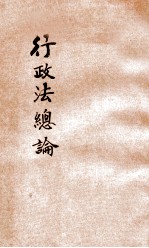 行政法總論